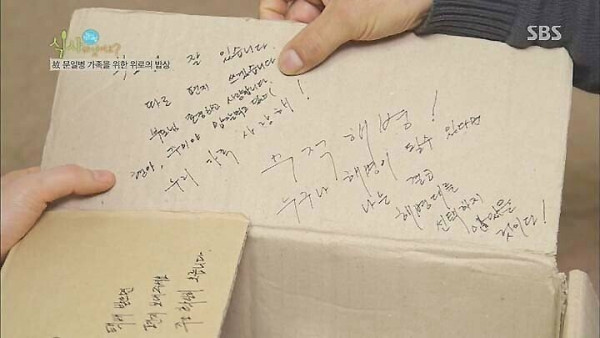 식사하셨어요?
SBS
故 문일병 가족을 위한 위로의 밥상
잘 있습니다
따로 편지 쓰겠습니다.
부모님 존경하고 사랑합니다.
우리 가족 사랑해!
무적 해병!
누구나 해병이 될수 있다면
나는 결코
해병대를
선택하지
않았을
것이다!